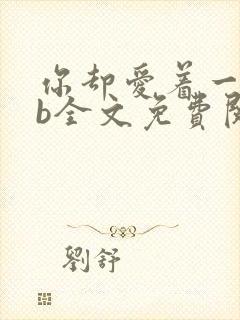 你却爱着一
b全文免費閱
劉舒